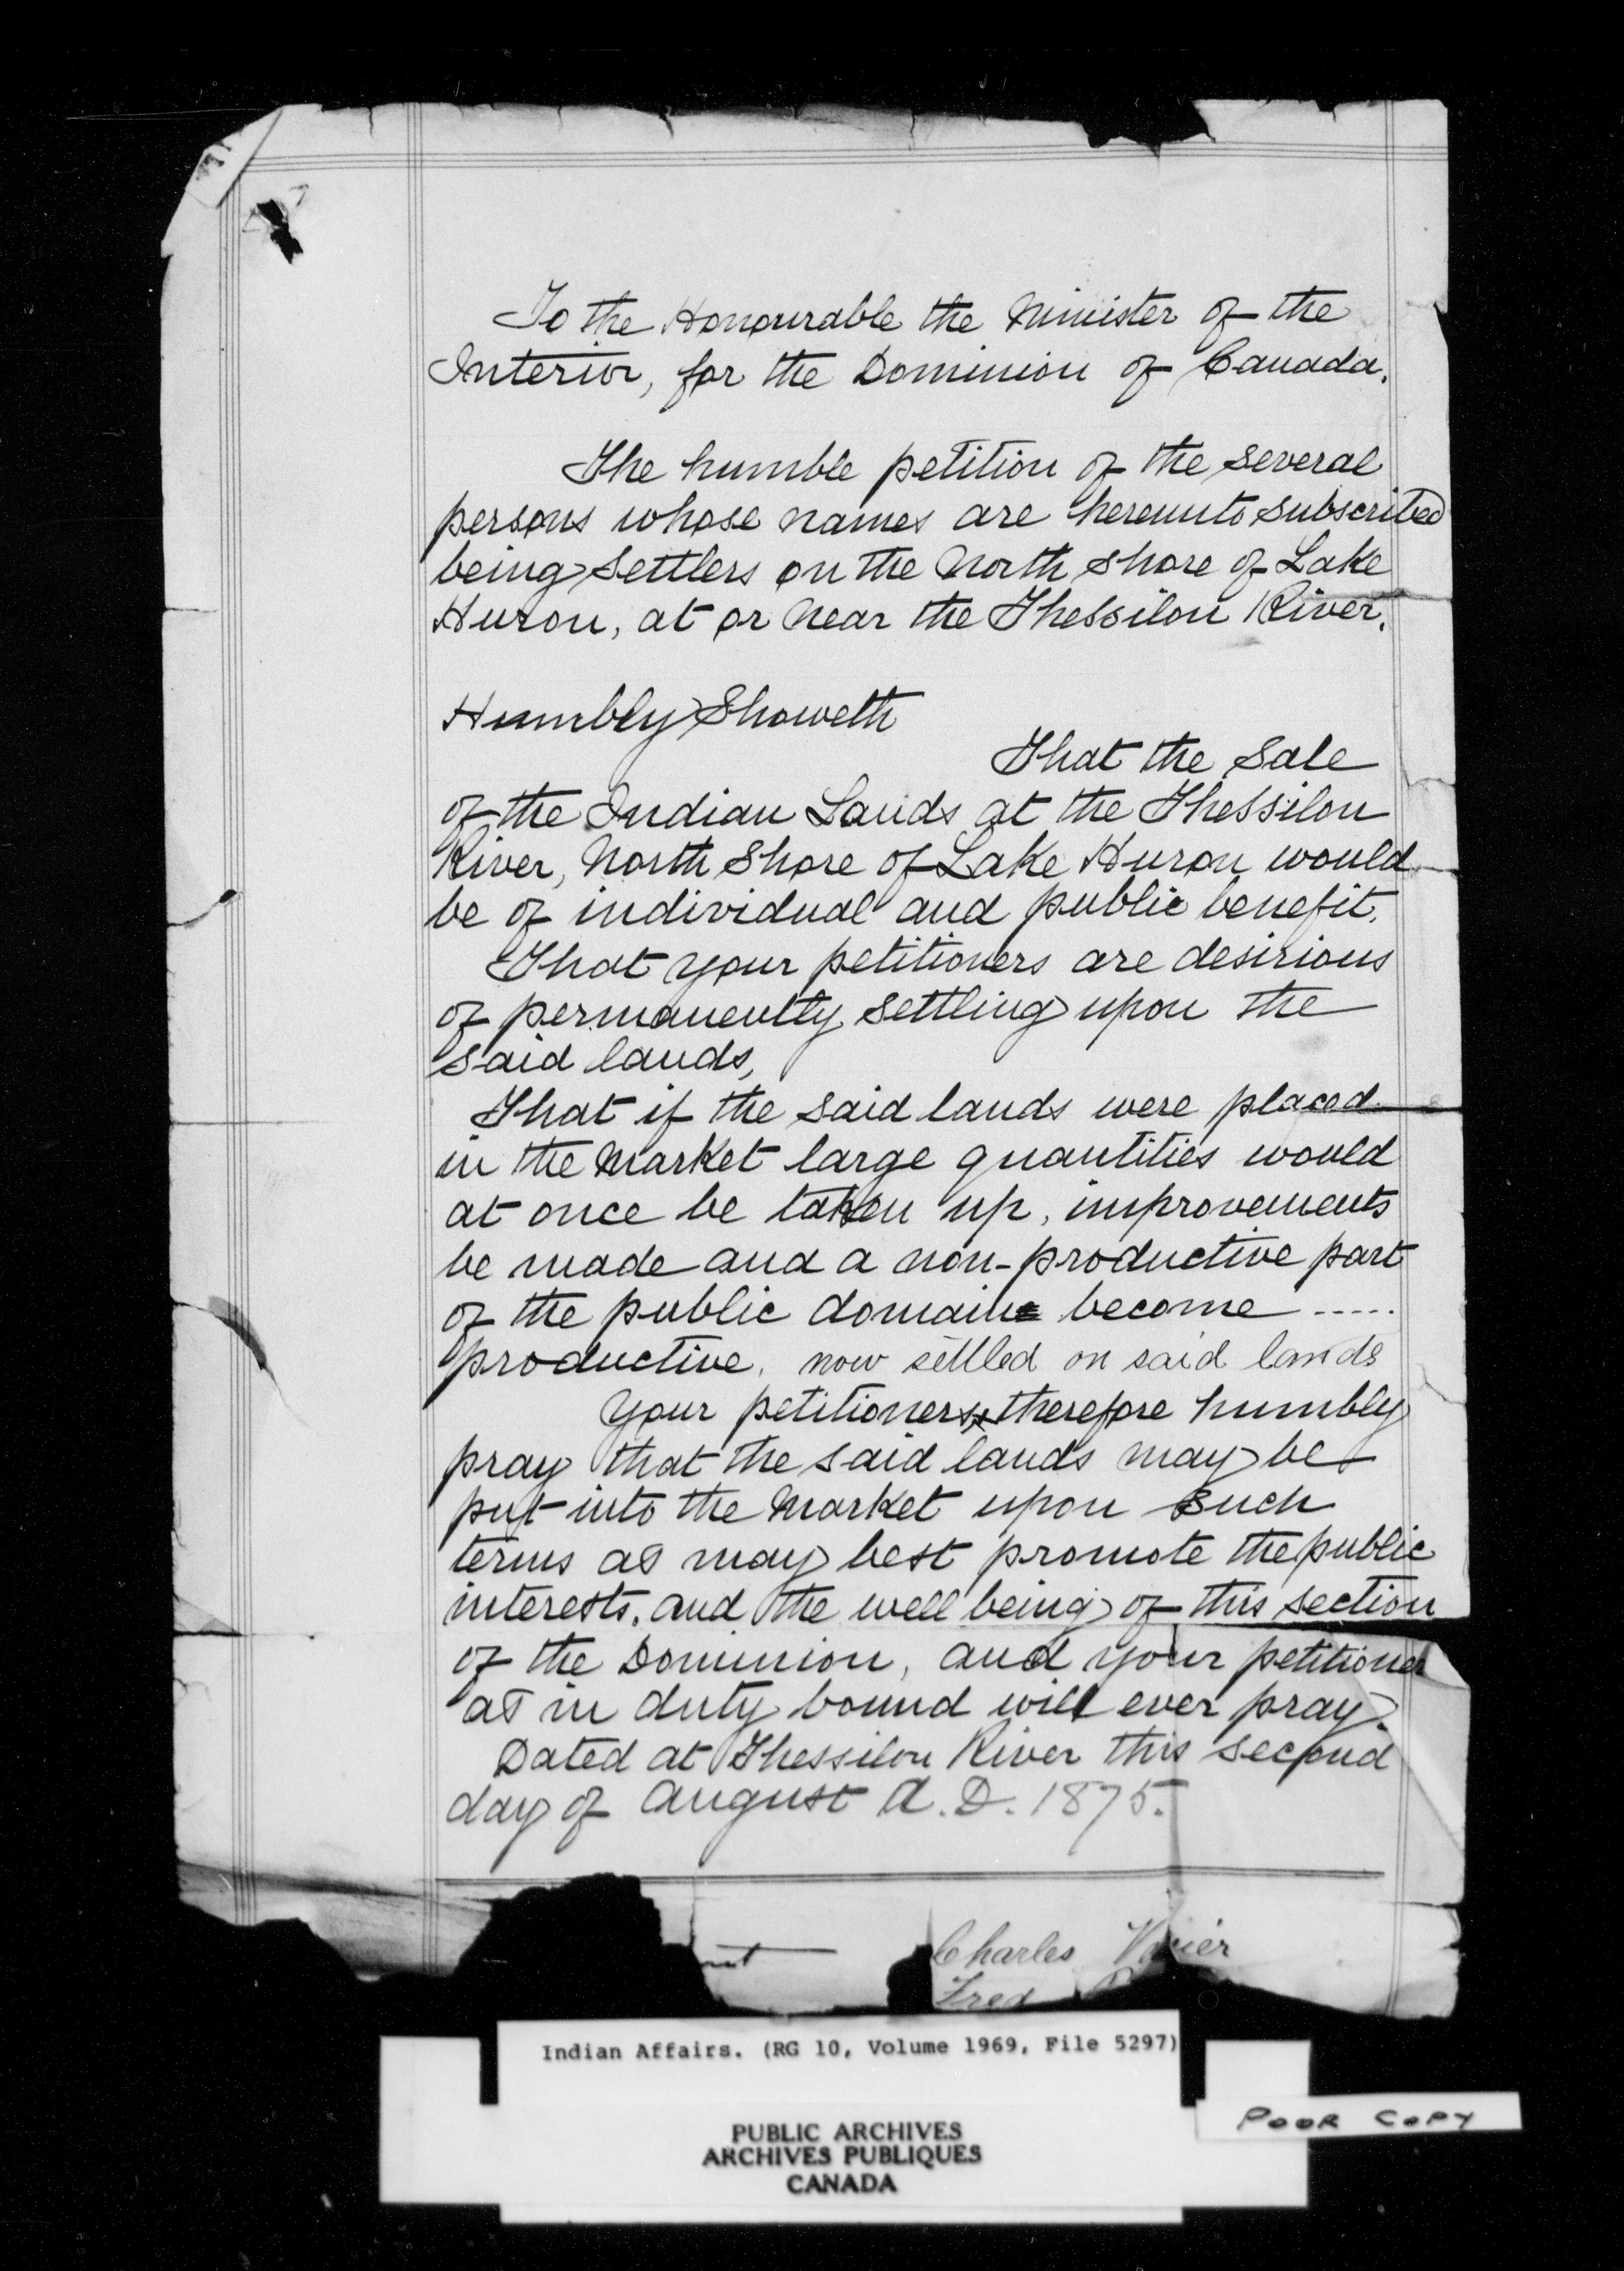 To the Honourable the Minister of the
Interior, for the Dominion of Canada.
The humble petition of the several
persons whose names are hereunto subscribed
being settlers on the North Shore of Lake
Huron, at or near the Thessilon River.
Humbly Showeth
That the Sale
of the Indian Lands at the Thessilon
River, North Shore of Lake Huron would
be of individual and public benefit.
That your petitioners are desirious
of permanently settling upon the
said lands,
That if the said lands were placed
in the Market large quantities would
at once be taken up, improvements
be made and a non-productive part
of the public domain become -----
productive. now settled on said lands
Your petitioners x therefore humbly
pray that the said lands may be
put into the Market upon such
terms as may best promote the public
interests, and the well being of this section
of the Dominion, and your petitioner
as in duty bound will ever pray.
Dated at Thessilon River this second
day of August A.D. 1875.
Charles
Fred
Indian Affairs. (RG 10, Volume 1969, File 5297)
PUBLIC ARCHIVES
ARCHIVES PUBLIQUES
CANADA
POOR COPY